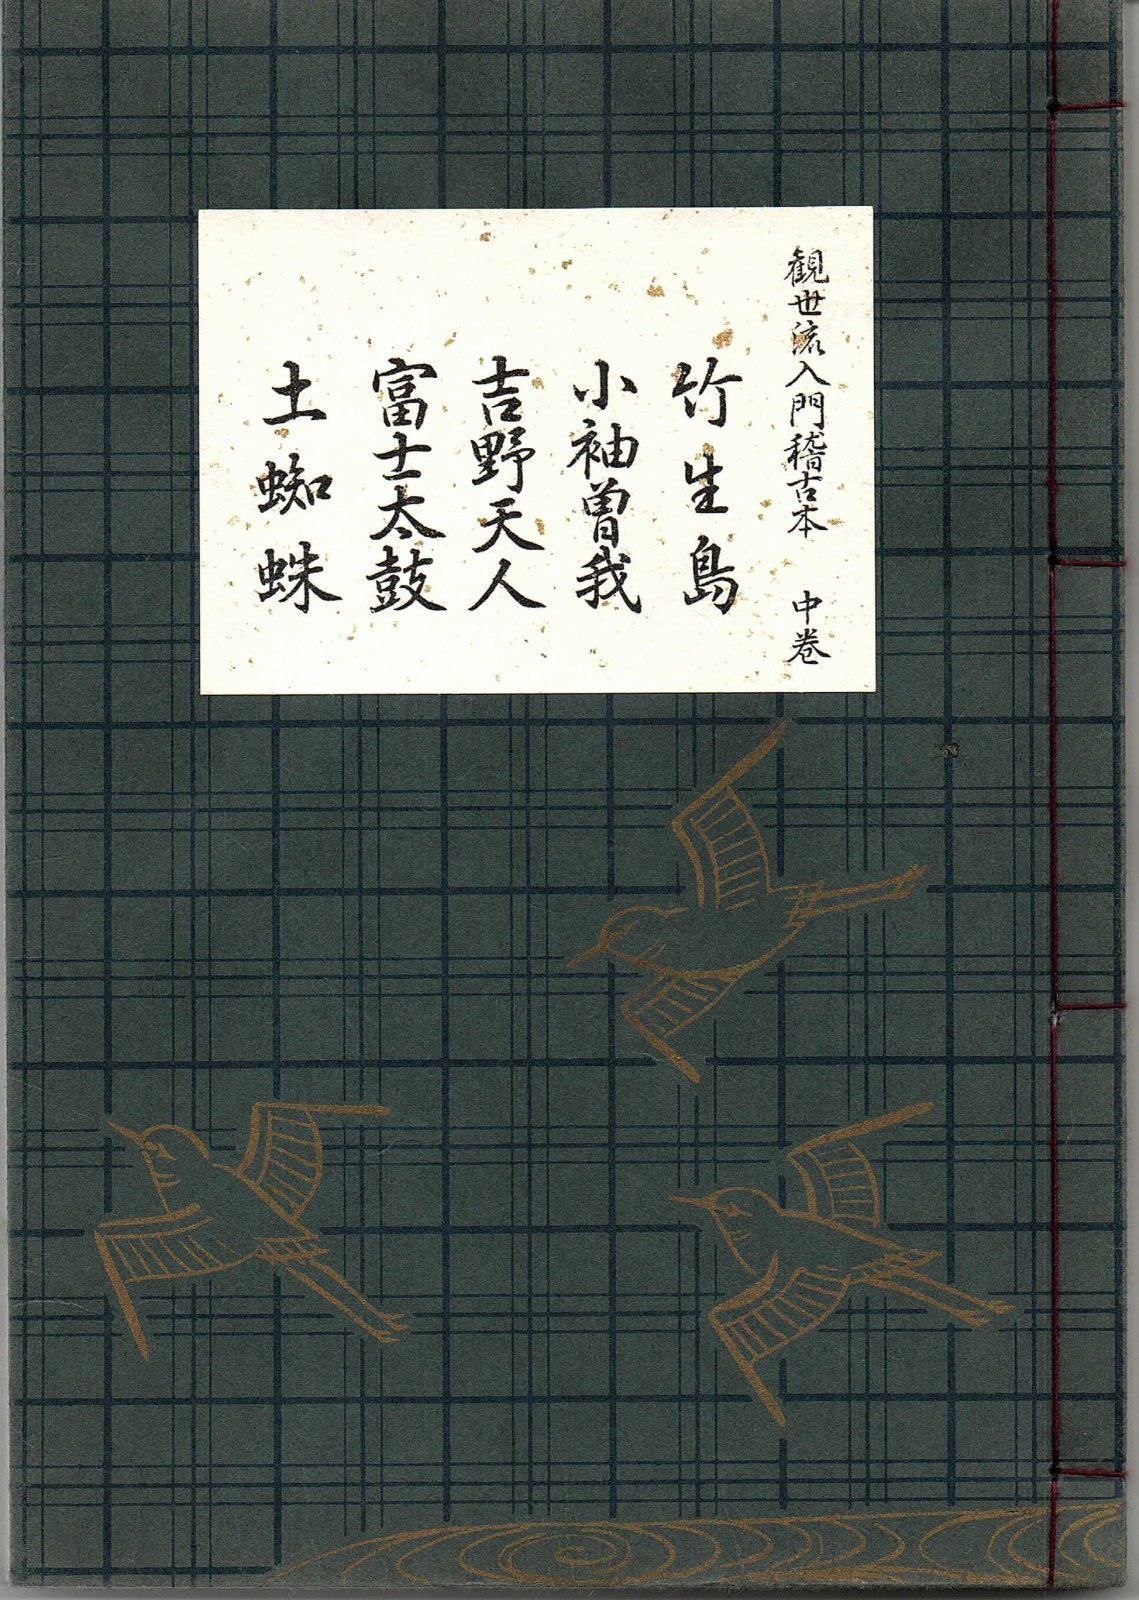 観世流入門稽古本 中巻
竹生島
小袖曽我
吉野天人
富士太鼓
土蜘蛛